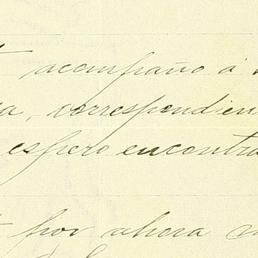 acompaño á
a, correspondien
espero encontra
por ahora